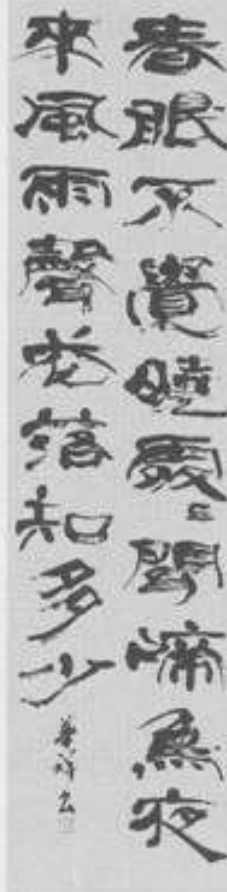 春眠不覺曉處〻聞啼鳥夜
來風雨聲花落知多少